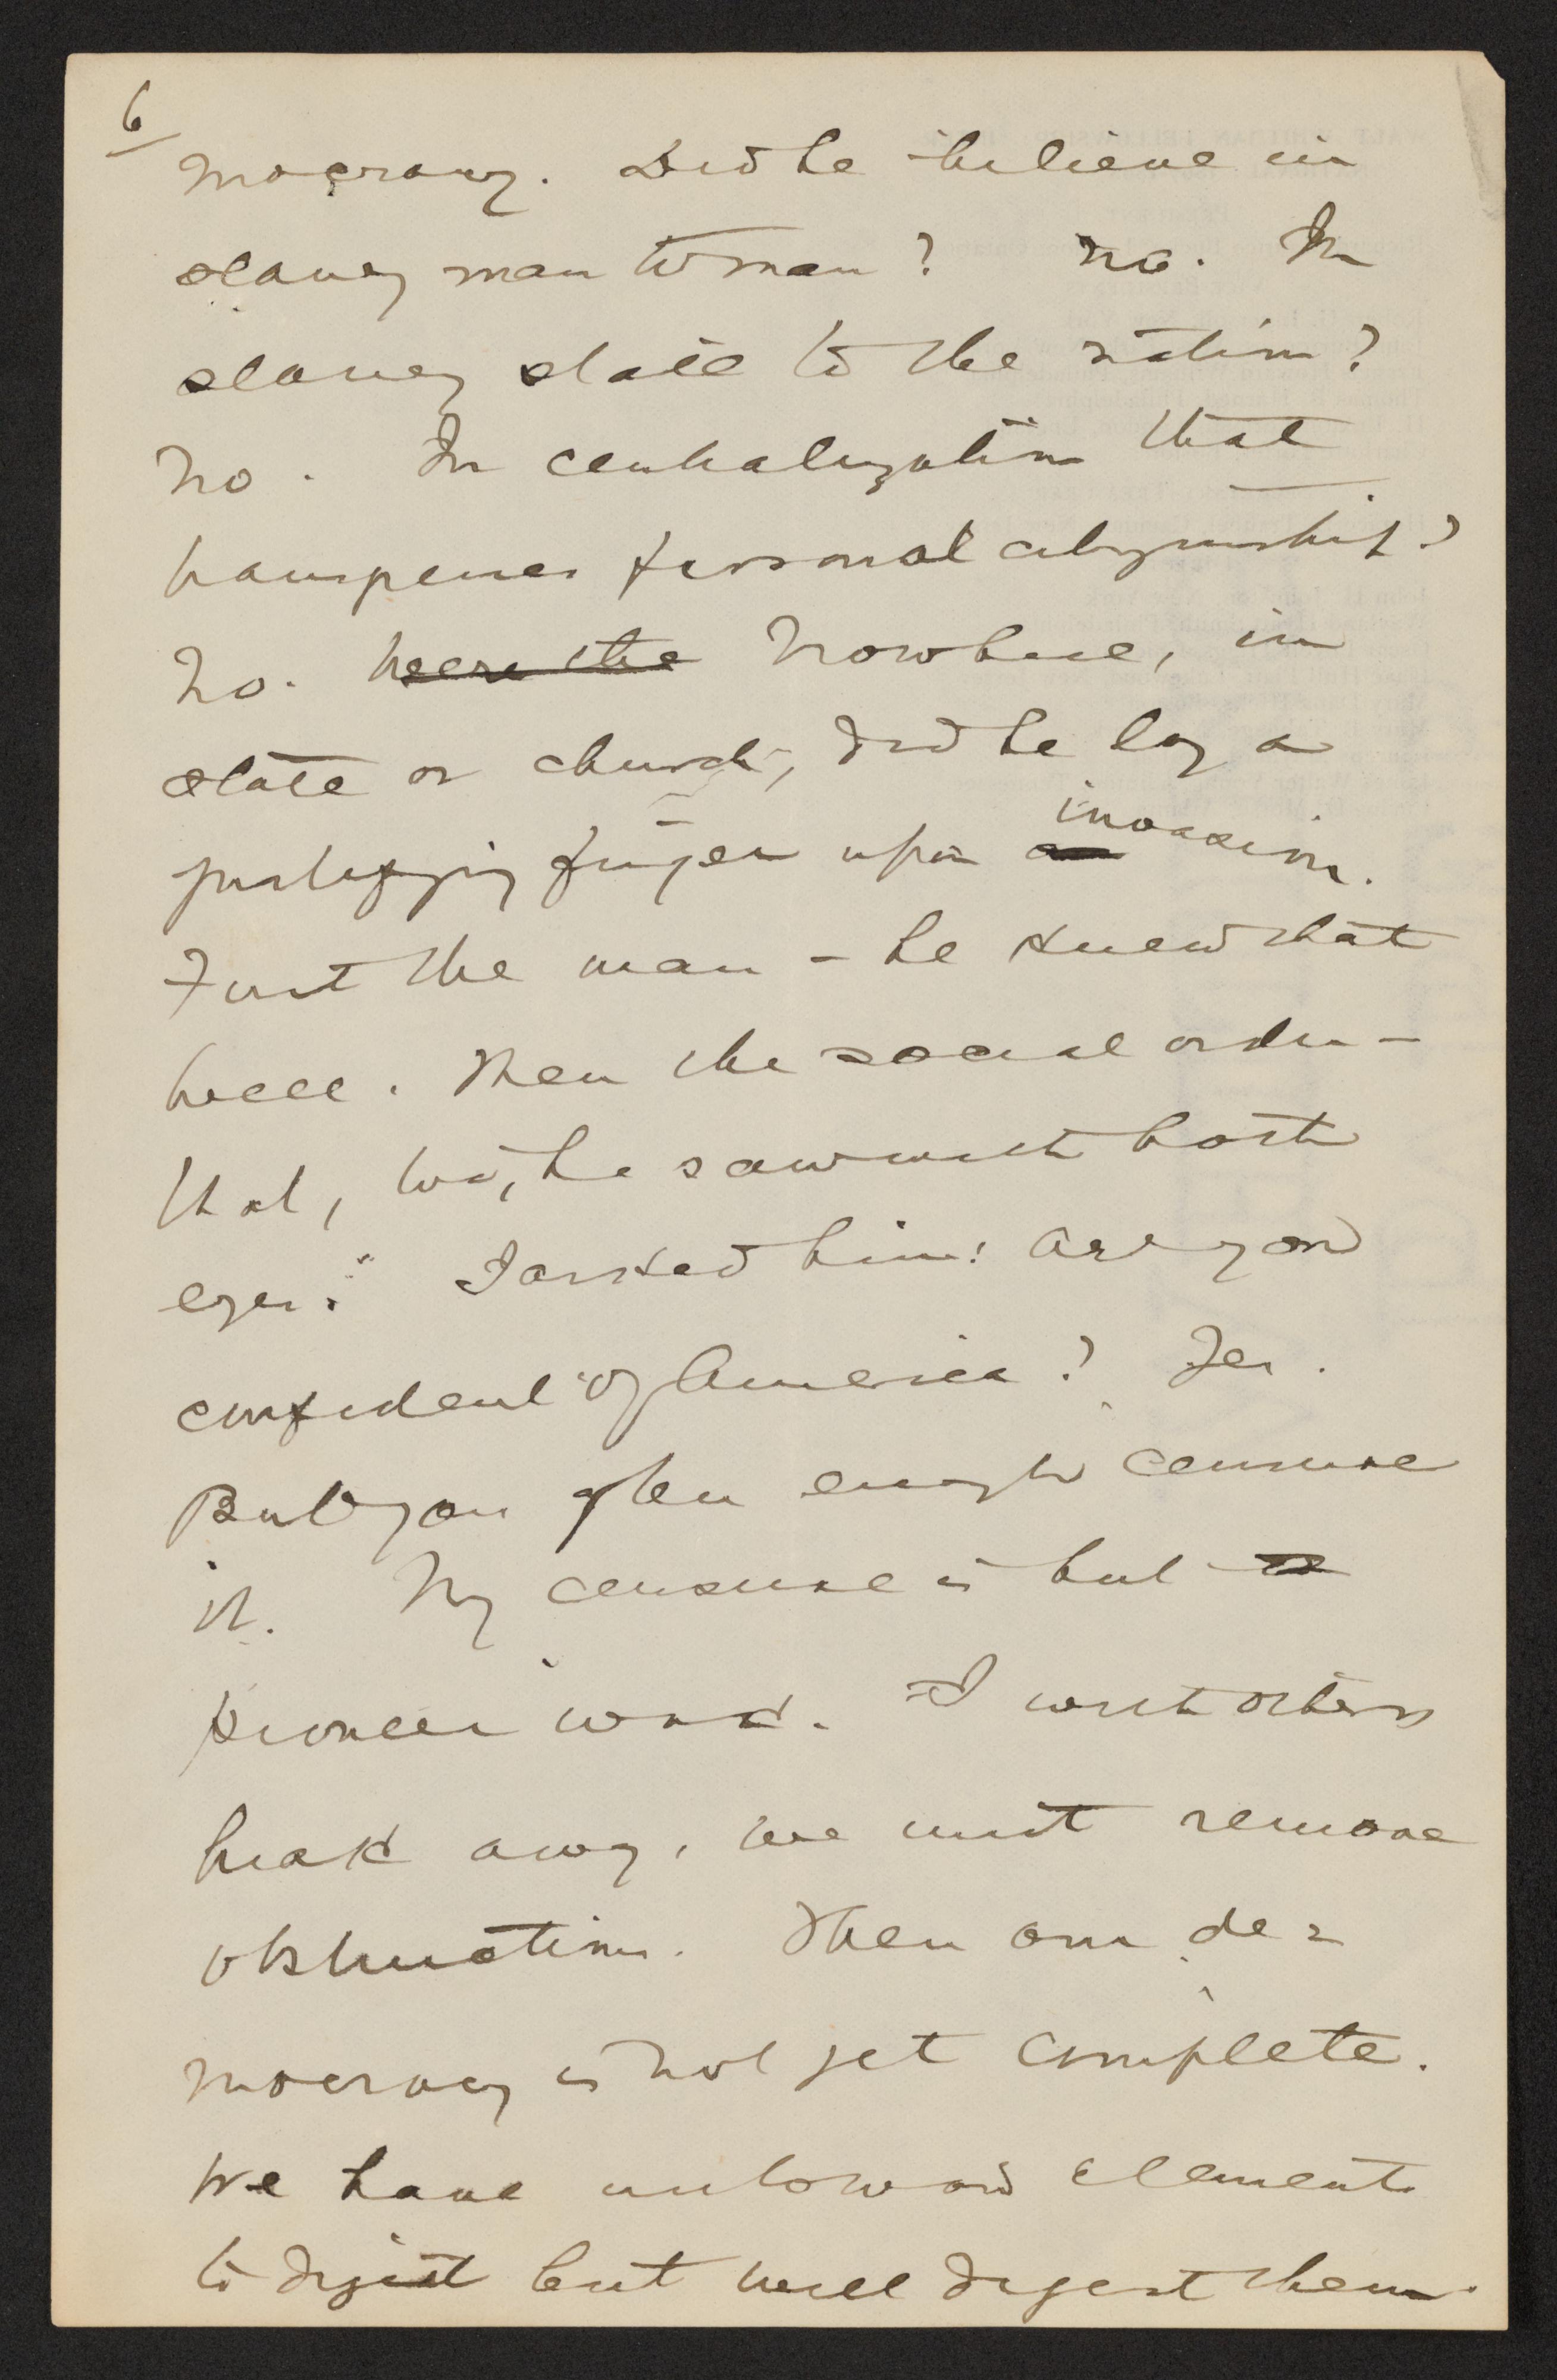 6
mocracy. Did he believe in
slavery man to man? No. In
slavery state to the nation?
No. In centralization that
transpierces personal citizenship?
No. Nowhere, in
state or church, did he lay a
justifying finger upon invasion.
First the man - he knew that
well. Then the social order -
that, too, he saw with both
eyes." I asked him: Are you
confident of America? Yes.
But you often enough censure
it. My censure is but
pioneer work. I with others
break away. We must remove
obstructions. Then our de=
mocracy is not yet complete.
We have untoward elements
to digest but will digest them.